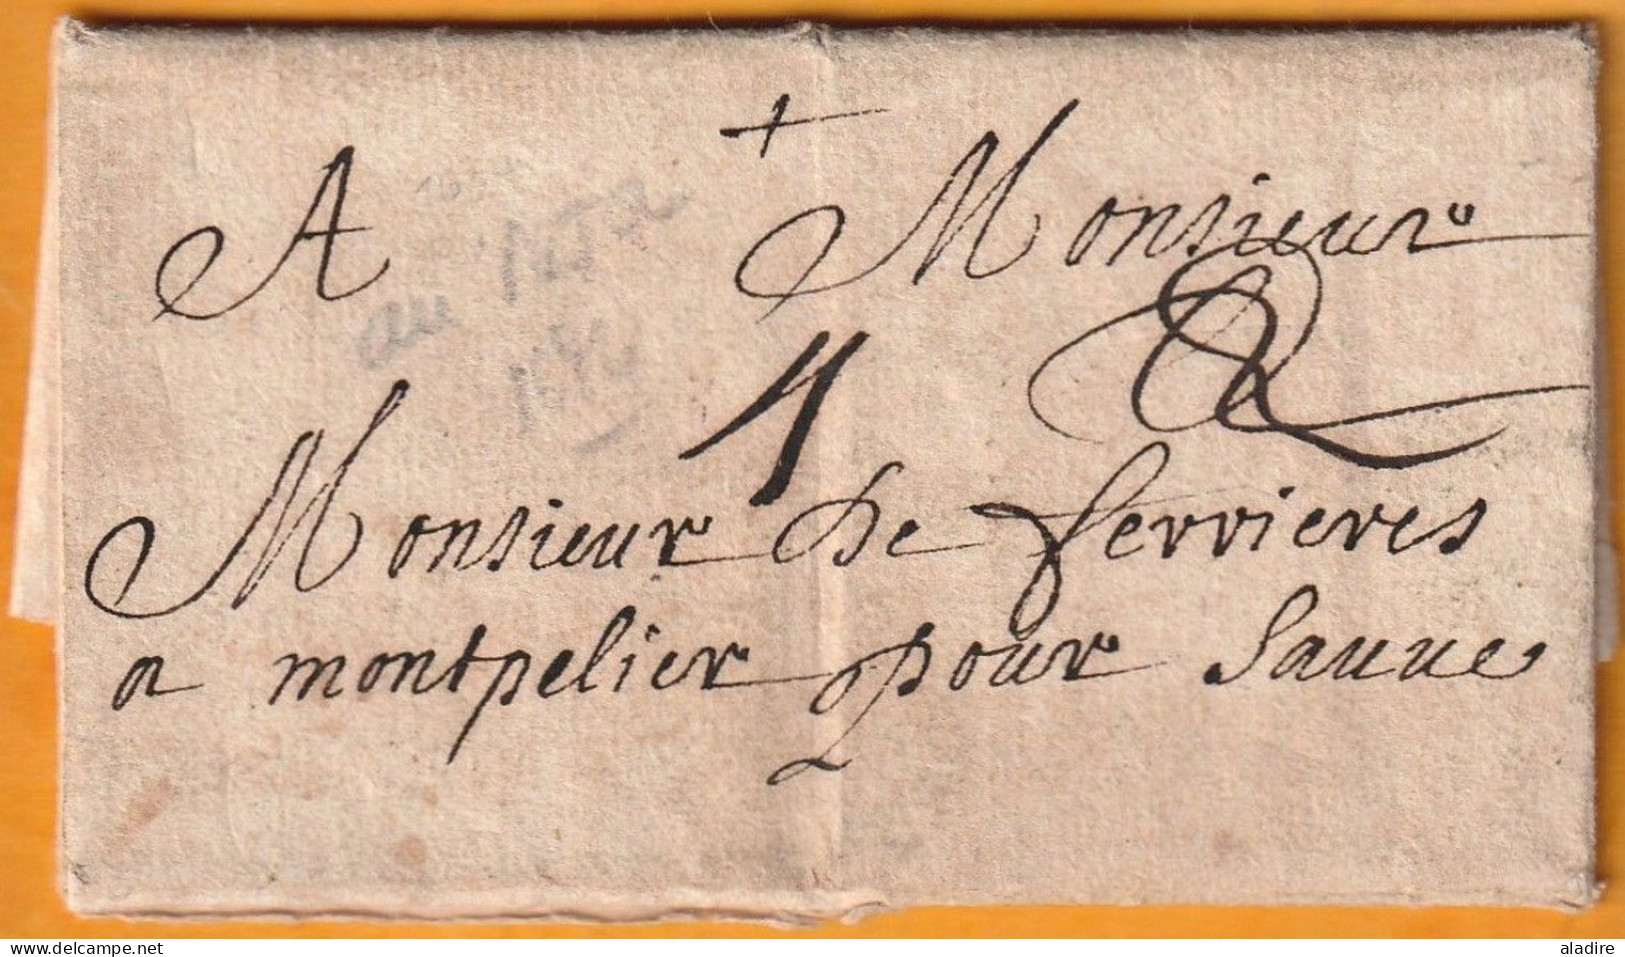 A Monsieur
4
Monsieur De ferrieres
a montpelier pour Sauve
www.delcampe.net
aladire